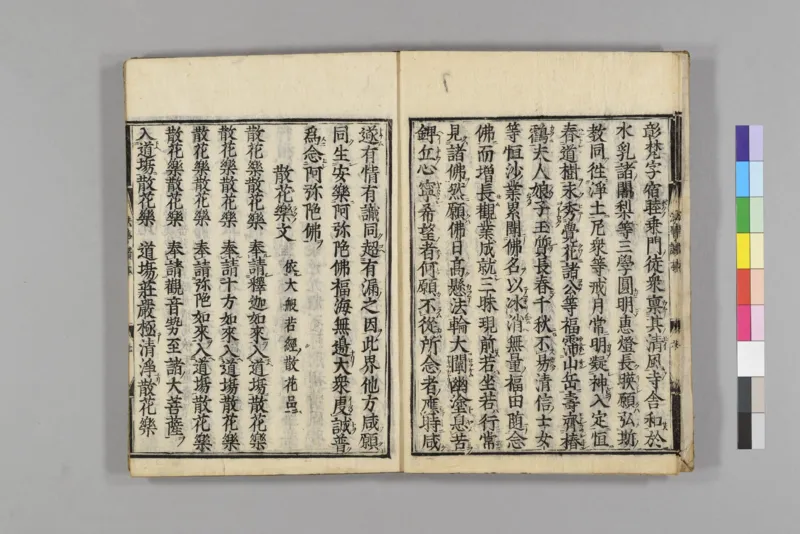 彰梵字宿莊乗門徒衆稟其清風寺舎和於
水乳諸闍梨等三學圓明惠燈長暎願弘斯
教同往淨土尼衆等戒月常明凝神入定恒
春道樹未秀覺花諸公等福霑山岳壽齊椿
鶴夫人娘子玉質長春千秋不易清信士女
等恒沙業累聞佛名以氷消無量福田随念
佛而增長觀業成就三昧現前若坐若行常
見諸佛然願佛日高懸法輪大闡幽塗息苦
鉀丘心寧希望者何願不從所念者應時咸
遂有情有識同超有漏之因此界他方咸願
同生安樂阿弥陀佛福海無邊大衆虔誠普
爲念阿弥陀佛
散花樂文 依大般若經散花品
散花樂散花樂 奉請釋迦如來入道塲散花樂
散花樂散花樂 奉請十方如來入道塲散花樂
散花樂散花樂 奉請弥陀如來入道塲散花樂
散花樂散花樂 奉請觀音勢至諸大菩薩
入道塲散花樂 道塲莊嚴極清淨散花樂